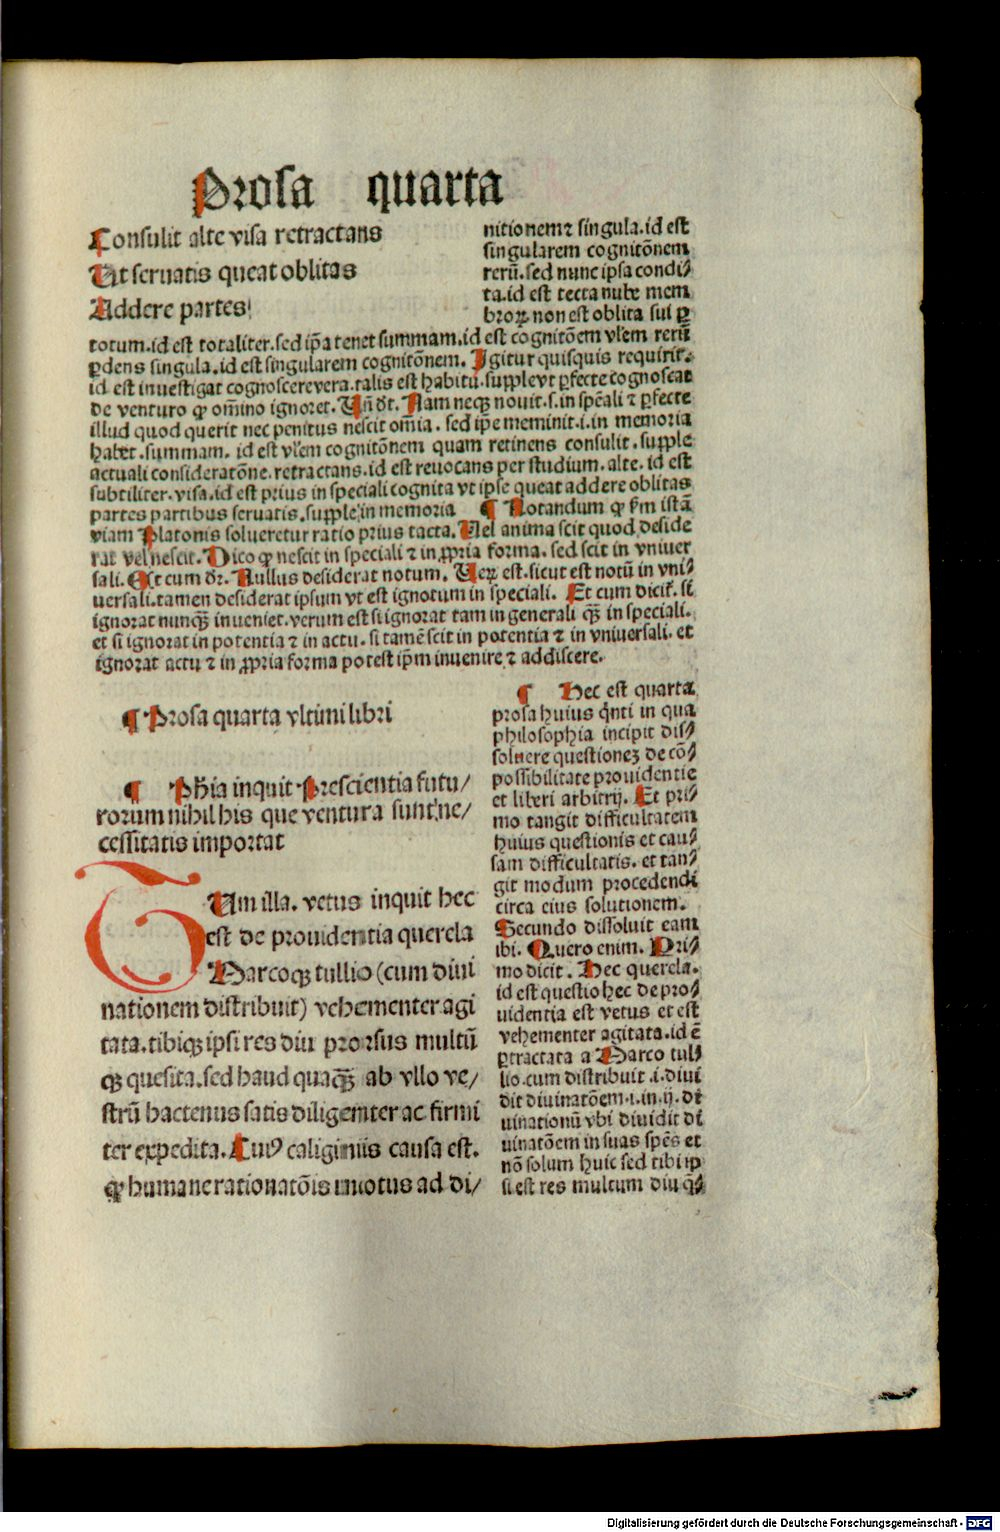 Prosa quarta
Consulit alte visa retractans
Ut seruatis queat oblitas
Addere partes
nitionem ⁊ singula.id est
singularem cognitōnem
rerū. sed nunc ipsa condi⸗
ta.id est tecta nube mem
broꝝ non est oblita sui ꝑ
totum.id est totaliter.sed ip̄a tenet summam.id est cognitōem vl̄em rerū
ꝑdens singula.id est singularem cognitōnem. Igitur quisquis requirit.
id est inuestigat cognoscere vera.talis est habitu.supple vt ꝑfecte cognoscat
de venturo ꝙ om̄ino ignoret. Un̄ dr̄. Nam neqꝫ nouit.s.in spēali ⁊ ꝑfecte
illud quod querit nec penitus nescit om̄ia. sed ip̄e meminit.i.in memoria
habet.summam. id est vl̄em cognitōnem quam retinens consulit.supple
actuali consideratōne.retractans.id est reuocans per studium.alte.id est
subtiliter.visa.id est prius in speciali cognita vt ipse queat addere oblitas
partes partibus seruatis.supple in memoria ¶ Notandum ꝙ ẜm istā
viam Platonis solueretur ratio prius tacta. Uel anima scit quod deside
rat vel nescit. Dico ꝙ nescit in speciali ⁊ in ꝓpria forma. sed scit in vniuer
sali. Et cum dr̄. Nullus desiderat notum. Ueꝝ est.sicut est notū in vni⸗
uersali.tamen desiderat ipsum vt est ignotum in speciali. Et cum dicit̄. si
ignorat nunqꝫ̄ inueniet.verum est si ignorat tam in generali qꝫ̄ in speciali.
et si ignorat in potentia ⁊ in actu.si tamē scit in potentia ⁊ in vniuersali. et
ignorat actu ⁊ in ꝓpria forma potest ip̄m inuenire ⁊ addiscere.
¶ Prosa quarta vltimi libri
¶ Ph̄ia inquit Prescientia futu/
rorum nihil his que ventura sunt ne/
cessitatis importat
TUm illa. vetus inquit hec
est de prouidentia querela
Marcoqꝫ tullio (cum diui
nationem distribuit) vehementer agi
tata.tibiqꝫ ipsi res diu prorsus multū
qꝫ quesita.sed haud quaqꝫ̄ ab vllo ve/
strū hactenus satis diligenter ac firmi
ter expedita. Cuiꝰ caliginis causa est.
ꝙ humane rationatōis motus ad di/
¶ Hec est quarta
prosa huius qͥnti in qua
philosophia incipit dis⸗
soluere questionez de cō⸗
possibilitate prouidentie
et liberi arbitrij. Et pri⸗
mo tangit difficultatem
huius questionis et cau⸗
sam difficultatis. et tan⸗
git modum procedendi
circa eius solutionem.
Secundo dissoluit eam
ibi. Quero enim. Pri⸗
mo dicit. Hec querela.
id est questio hec de pro⸗
uidentia est vetus et est
vehementer agitata.id ē
ꝑtractata a Marco tul⸗
lio.cum distribuit.i.diui
dit diuinatōem.i.in.ij. di
uinationū vbi diuidit di
uinatōem in suas spēs et
nō solum huic sed tibi ip
si est res multum diu q̄⸗
Digitalisierung gefördert durch die Deutsche Forschungsgemeinschaft - DFG